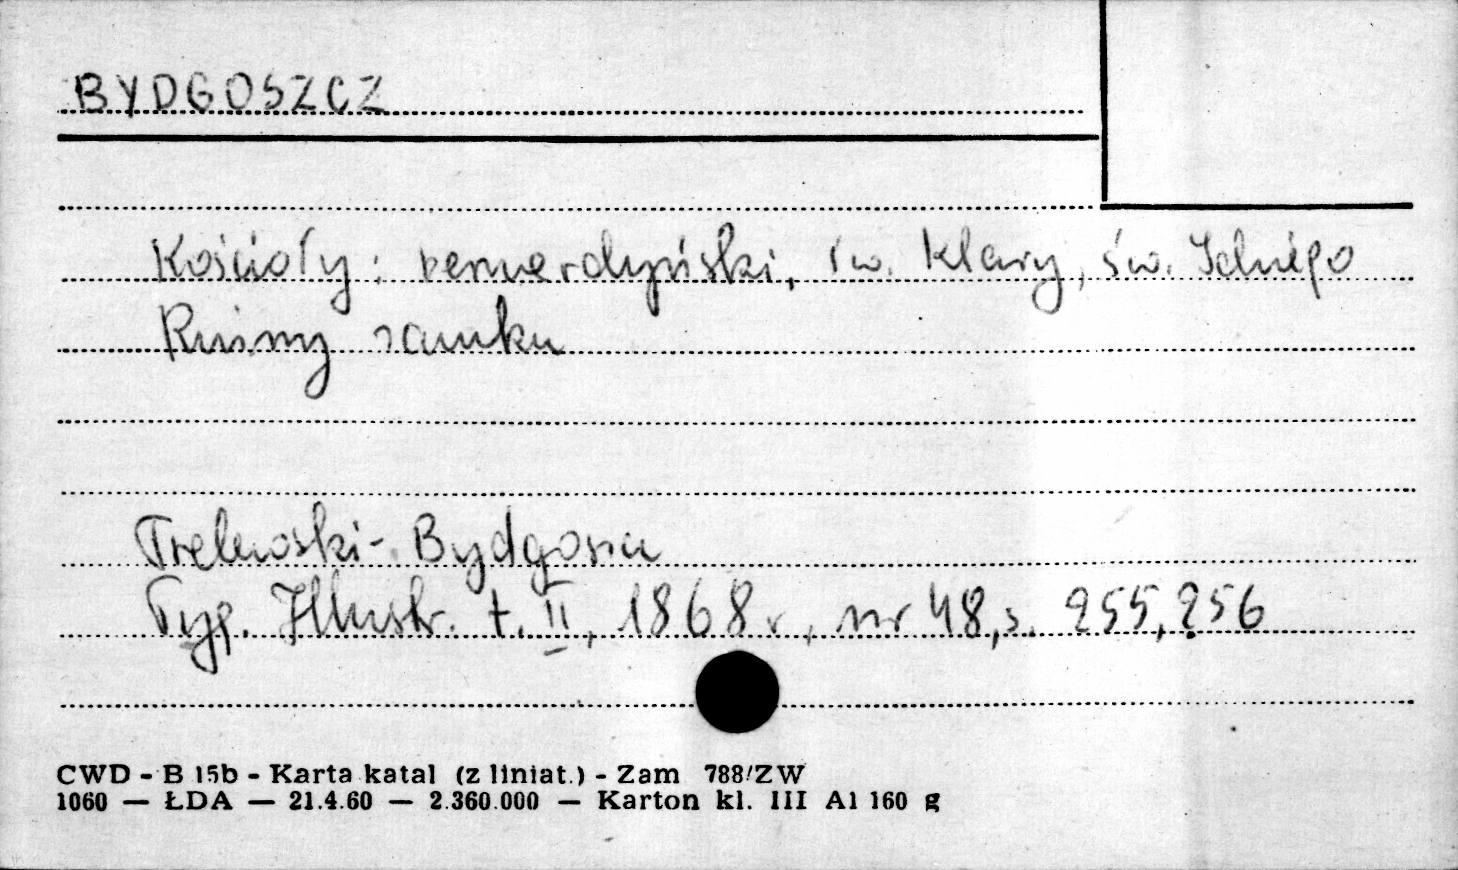 BYDGOSZCZ
Kościoły: bernardyński, św. Klary, św. Idziego
Ruiny zamku
Bydgoszcz
Tyg. Illustr. t. II, 1868 r., nr 48, s. 255, 256
CWD - B 15b - Karta katal (z liniat.) - Zam 788/ZW
1060 — ŁDA — 21.4.60 — 2.360.000 — Karton kl. III A1 160 g